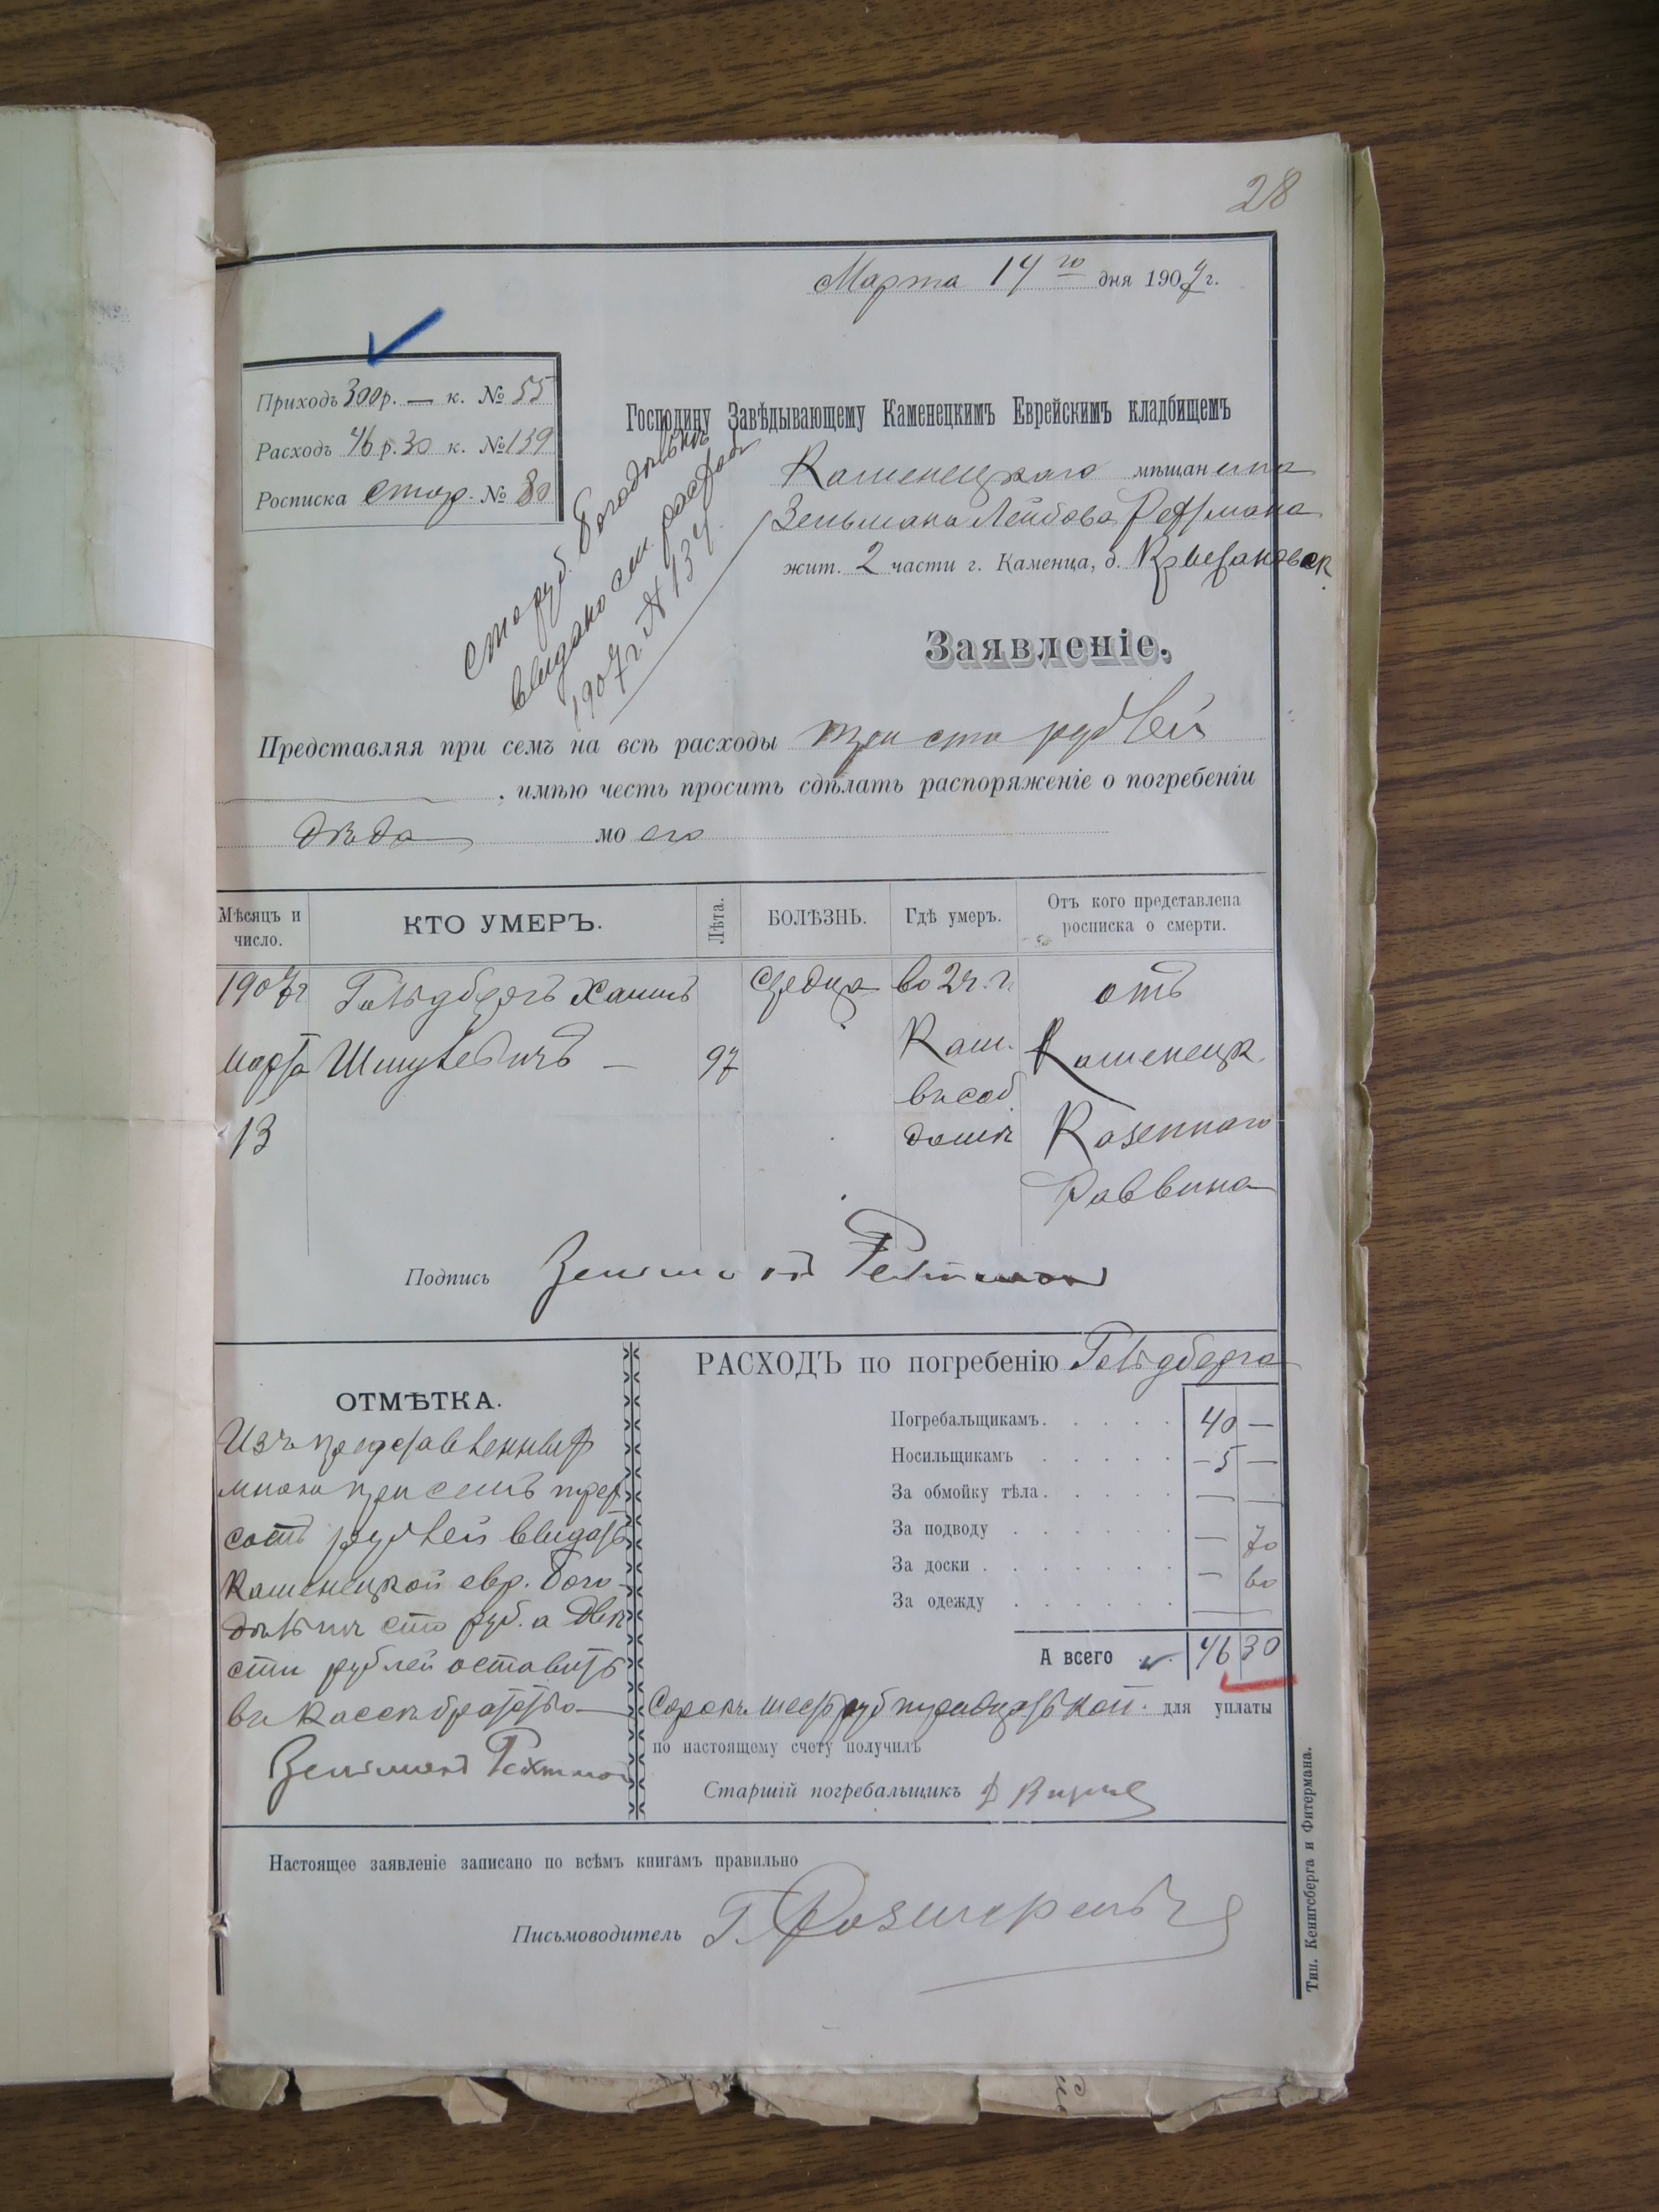 28
Марта 14го дня 1907 г.
Приходъ 300 р. — к. № 55
Расходъ 46 р. 30 к. № 139
Росписка стар. № 80
Господину Завѣдывающему Каменецкимъ Еврейскимъ кладбищемъ
Каменецкаго мѣщанина
Зельмана Лейбова Рехтмана
жит. 2 части г. Каменца, д.
Сто руб. Богодѣльнѣ
выдано см. расход
1907 г. № 134
Заявленіе.
Представляя при семъ на всѣ расходы триста рублей
, имѣю честь просить сдѣлать распоряженіе о погребеніи
дѣда моего
Мѣсяцъ и число. КТО УМЕРЪ. Лѣта. БОЛѢЗНЬ. Гдѣ умеръ. Отъ кого представлена росписка о смерти.
1907 г Гольдбергъ Хаимъ сердца во 2 ч. г. отъ
марта Шмулевичъ — 97 Кам. Каменецк.
13 въ соб. домѣ Казеннаго
Раввина
Подпись Зельманъ Рехтман
РАСХОДЪ по погребенію Гольдберга
ОТМѢТКА.
Изъ представленныхъ
мною при семъ трех
сотъ рублей выдать
Каменецкой евр. Бого-
дѣльнѣ сто руб. а двѣ
сти рублей оставить
въ кассѣ братства
Зельманъ Рехтман
Погребальщикамъ. 40 —
Носильщикамъ — 5 —
За обмойку тѣла. — —
За подводу — 70
За доски — 60
За одежду
А всего 46 30
Сорокъ шесть руб тридцать коп. для уплаты
по настоящему счету получилъ
Старшій погребальщикъ
Настоящее заявленіе записано по всѣмъ книгамъ правильно
Письмоводитель Г.
Тип. Кенигсберга и Фитермана.